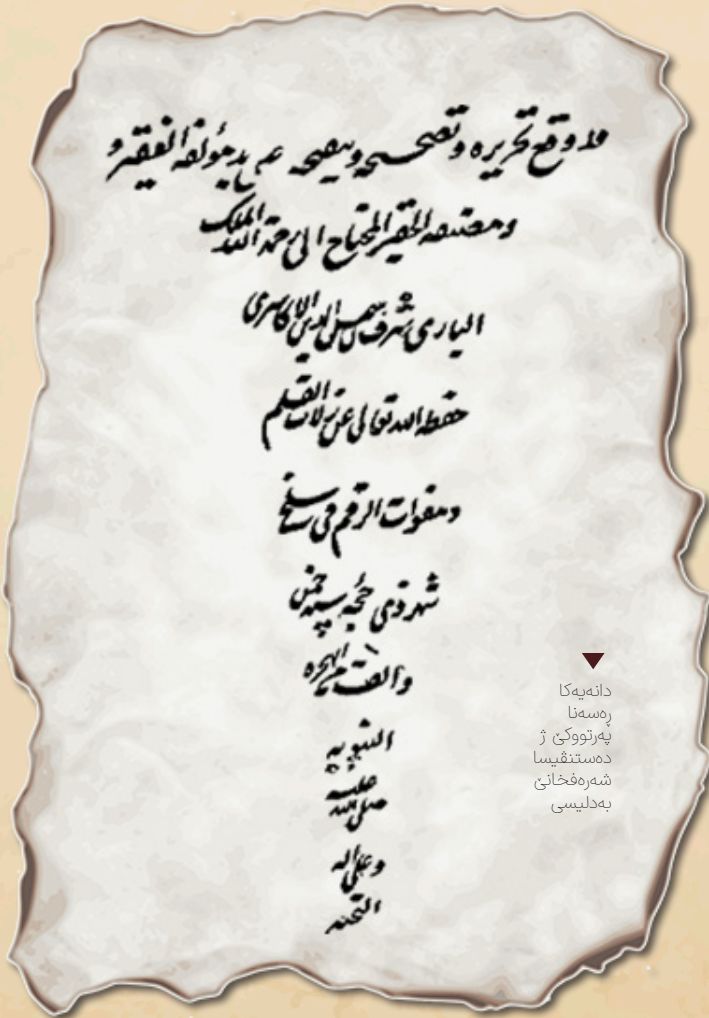 قد وقع تحریره و تصحیحه و تنقیحه علی ید مؤلفه الفقیر و
ومصنفه الحقیر المحتاج الی رحمة الله الملک
الباری شرف بن شمس الدین الاکاسری
حفظه الله تعالی عن زلات القلم
وهفوات الرقم فی سلخ
شهر ذی حجه سنه خمس
والف من الهجره
النبویه
علیه صلی الله
وعلی آله
التحیه
دانەیەکا
ڕەسەنا
پەرتووکێ ژ
دەستنڤیسا
شەرەفخانێ
بەدلیسی